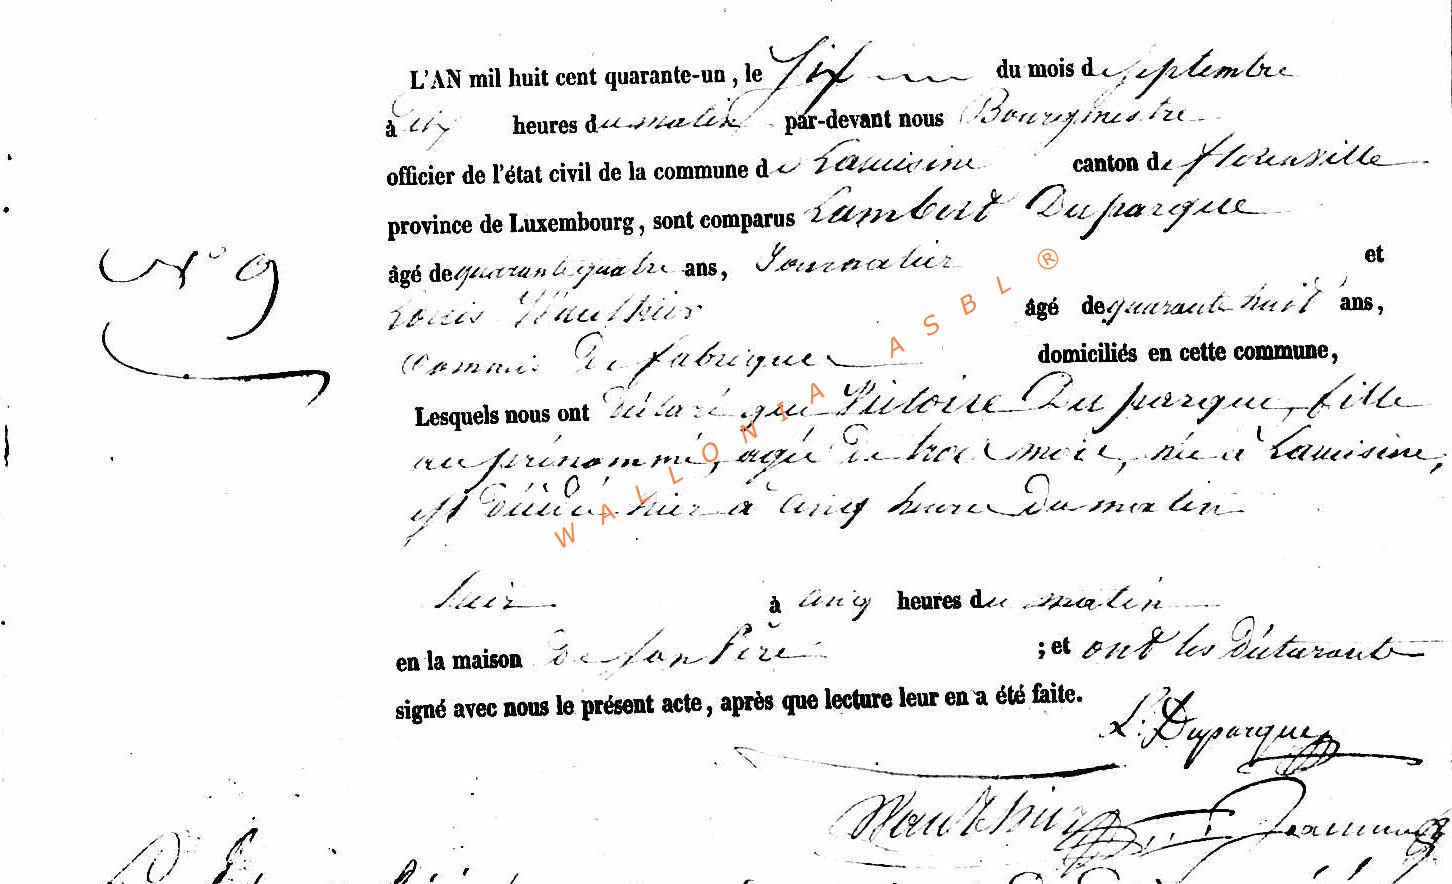 L'AN mil huit cent quarante-un, le Six du mois de Septembre
à dix heures du matin par-devant nous Bourgmestre
officier de l'état civil de la commune de Lacuisine canton de florenville
province de Luxembourg, sont comparus Lambert Duparque
N° 9
âgé de quarante quatre ans, Journalier et
Louis Wauthier âgé de quarante huit ans,
Commis de fabrique domiciliés en cette commune,
Lesquels nous ont déclaré que Victoire Duparque, fille
au prénommé, agée de trois mois, née à Lacuisine,
est décédé hier à cinq heure du matin
hier à cinq heures du matin
en la maison de son Père ; et ont les déclarants
signé avec nous le présent acte, après que lecture leur en a été faite.
L. Duparque
Wauthier
WALLONIA ASBL ®